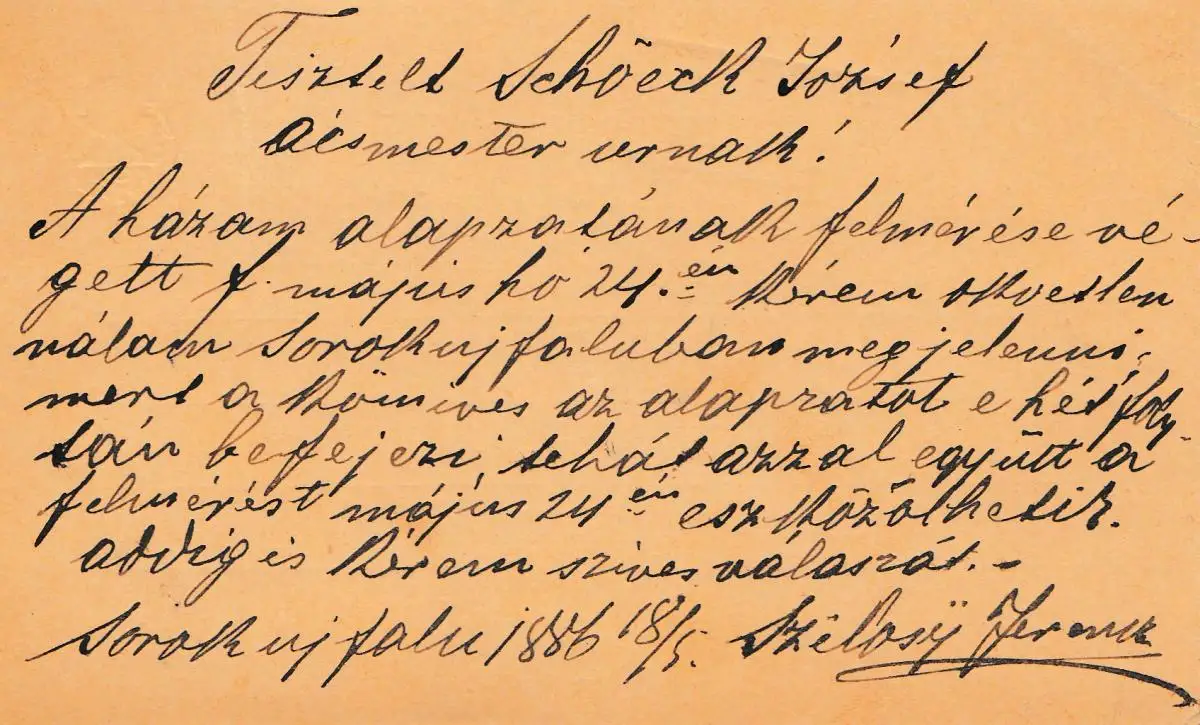 Tisztelt Schöeck József
ácsmester urnak!
A házam alapzatának felmérése vé-
gett f. május hó 24.én kérem okvetlen
nálam Sorokujfaluban megjelenni,
mert a kőmives az alapzatot e hét foly-
tán befejezi, tehát azzal együtt a
felmérést május 24én eszközölhetik.
addig is kérem szives válaszát. -
Sorokujfalu 1886 18/5. Ferencz